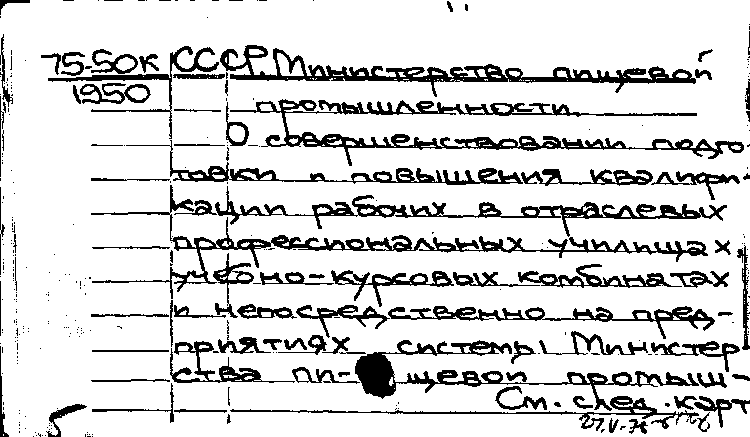 75-50К СССР. Министерство пищевой
1950
промышленности.
О совершенствовании подго-
товки и повышения квалифи-
кации рабочих в отраслевых
профессиональных училищах,
учебно-курсовых комбинатах
и непосредственно на пред-
приятиях системы Министер-
ства пи- щевой промыш-
См. след. карт